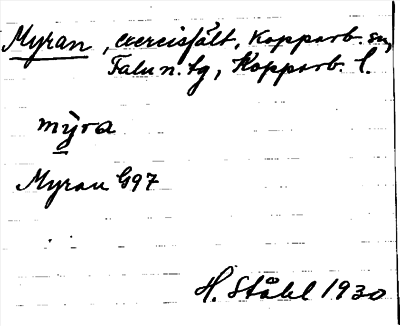 Myran, exercisfält, Kopparb. sn,
Falu n. tg, Kopparb. l.
mỳra
Myran G97
H. Ståhl 1930